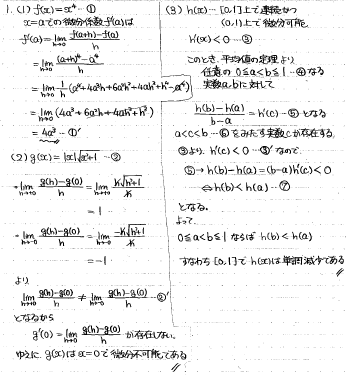 1. (1) f(x)=x⁴ …①
x=aでの微分係数f'(a)は
f'(a)=lim_{h→0} (f(a+h)-f(a))/h
=lim_{h→0} ((a+h)⁴-a⁴)/h
=lim_{h→0} 1/h (a⁴+4a³h+6a²h²+4ah³+h⁴-a⁴)
=lim_{h→0} (4a³+6a²h+4ah²+h³)
=4a³ …①'
(2) g(x)=|x|√(x²+1) …②
・lim_{h→+0} (g(h)-g(0))/h = lim_{h→+0} h√(h²+1)/h
= 1
・lim_{h→-0} (g(h)-g(0))/h = lim_{h→-0} -h√(h²+1)/h
=-1
より
lim_{h→+0} (g(h)-g(0))/h ≠ lim_{h→-0} (g(h)-g(0))/h …②'
となるから
g'(0)=lim_{h→0} (g(h)-g(0))/h が存在しない。
ゆえに g(x)はx=0で微分不可能である
(3) h(x)… [0,1]上で連続かつ
(0,1)上で微分可能
h'(x)<0 …③
このとき、平均値の定理より
任意の 0≦a<b≦1 …④なる
実数a,bに対して
(h(b)-h(a))/(b-a) = h'(c) …⑤となる
a<c<b …⑥をみたす実数cが存在する
③より、h'(c)<0 …③' なので
⑤→h(b)-h(a)=(b-a)h'(c)<0
⇔h(b)<h(a) …⑦
となる。
よって、
0≦a<b≦1 ならば h(b)<h(a)
すなわち [0,1]で h(x)は単調減少である